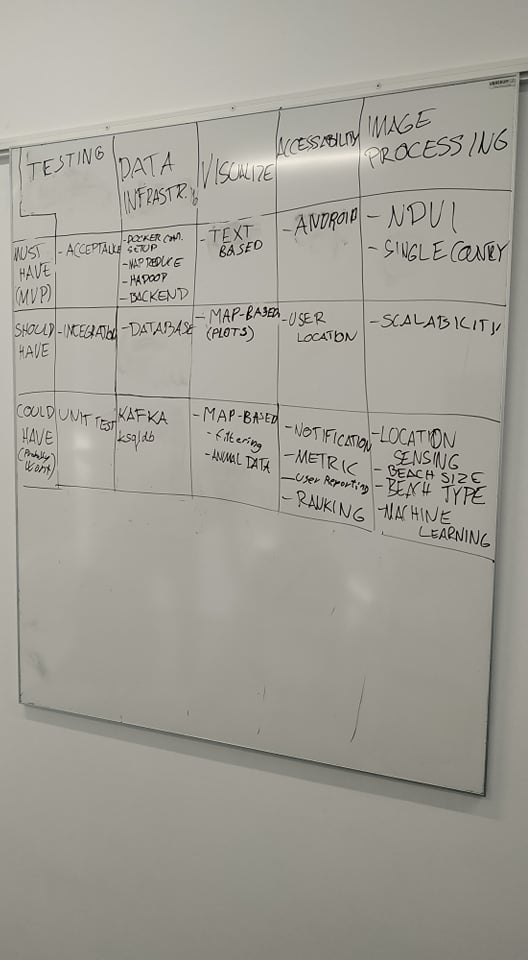 TESTING
DATA
INFRASTR.
VISUALIZE
ACCESSABILITY
IMAGE
PROCESSING
MUST
HAVE
(MVP)
- ACCEPTANCE
- DOCKER CONT.
SETUP
- MAP REDUCE
- HADOOP
- BACKEND
- TEXT
BASED
- ANDROID
- NDVI
- SINGLE COUNTRY
SHOULD
HAVE
- INTEGRATION
- DATABASE
- MAP-BASED
(PLOTS)
- USER
LOCATION
- SCALABILITY
COULD
HAVE
(Probably
Won't)
UNIT TEST
KAFKA
ksqldb
- MAP-BASED
- Filtering
- ANIMAL DATA
- NOTIFICATION
- METRIC
- User Reporting
- RANKING
- LOCATION
SENSING
- BEACH SIZE
- BEACH TYPE
- MACHINE
LEARNING